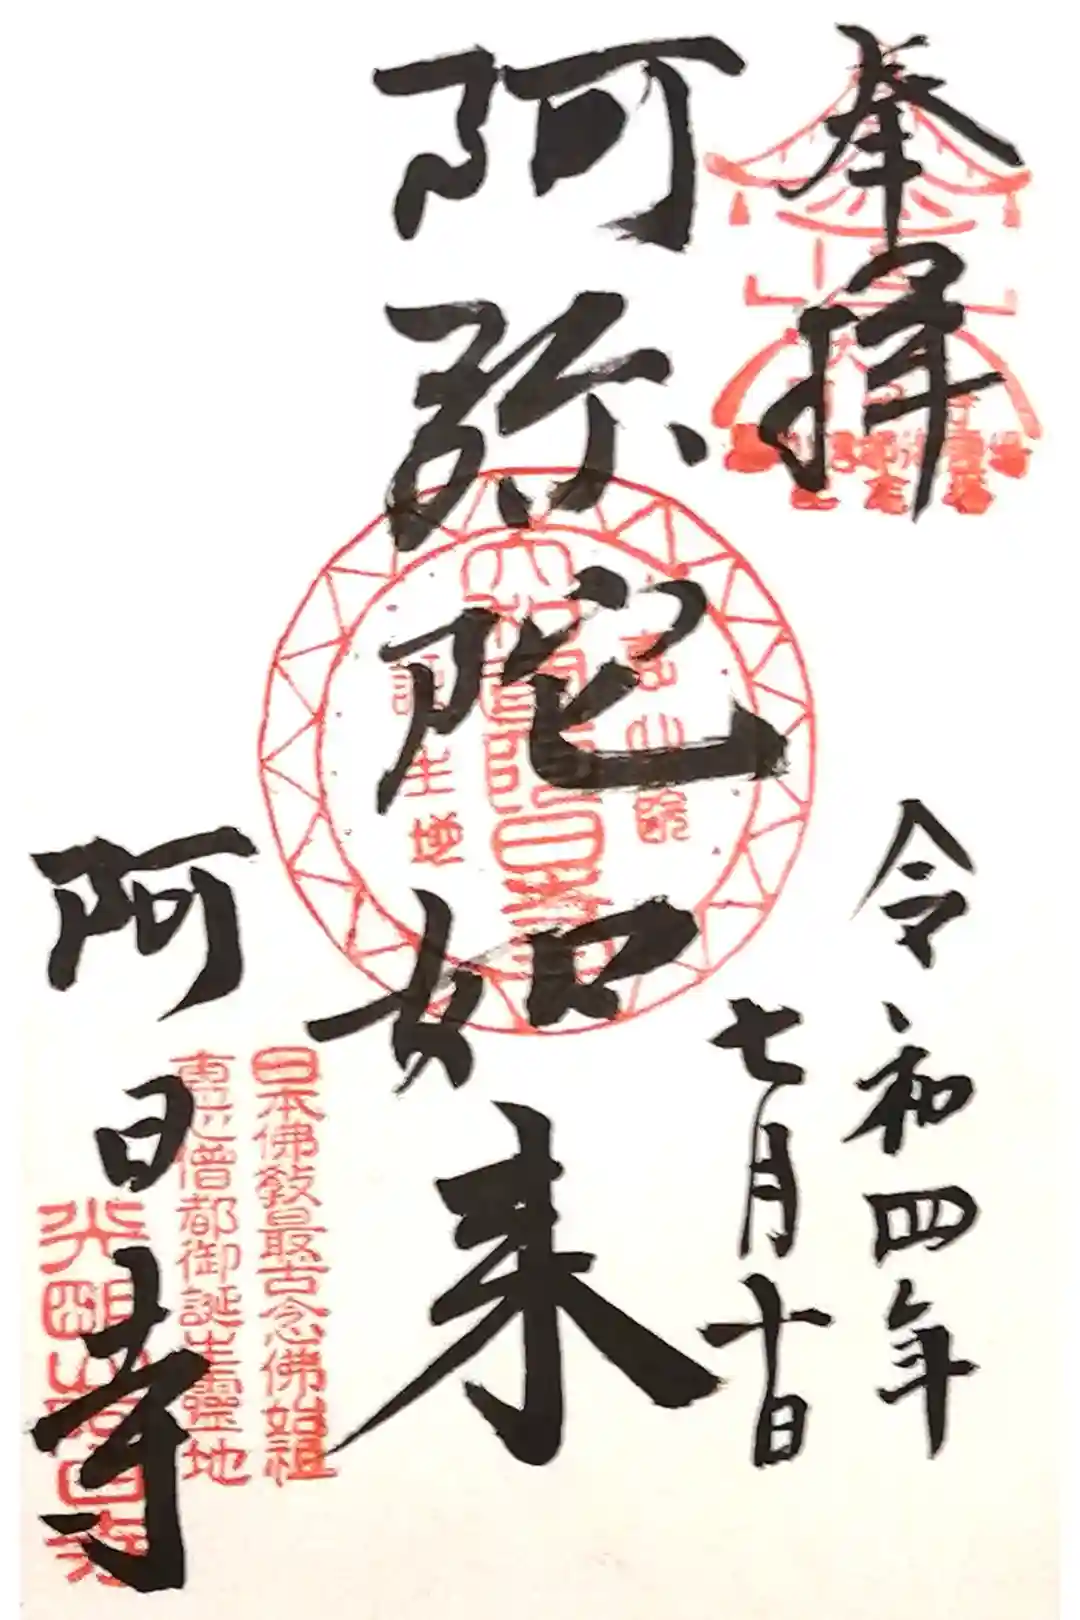 奉拝
令和四年
七月十日
阿弥陀如来
日本佛教最古念佛始祖
恵心僧都御誕生靈地
阿日寺
誕生地